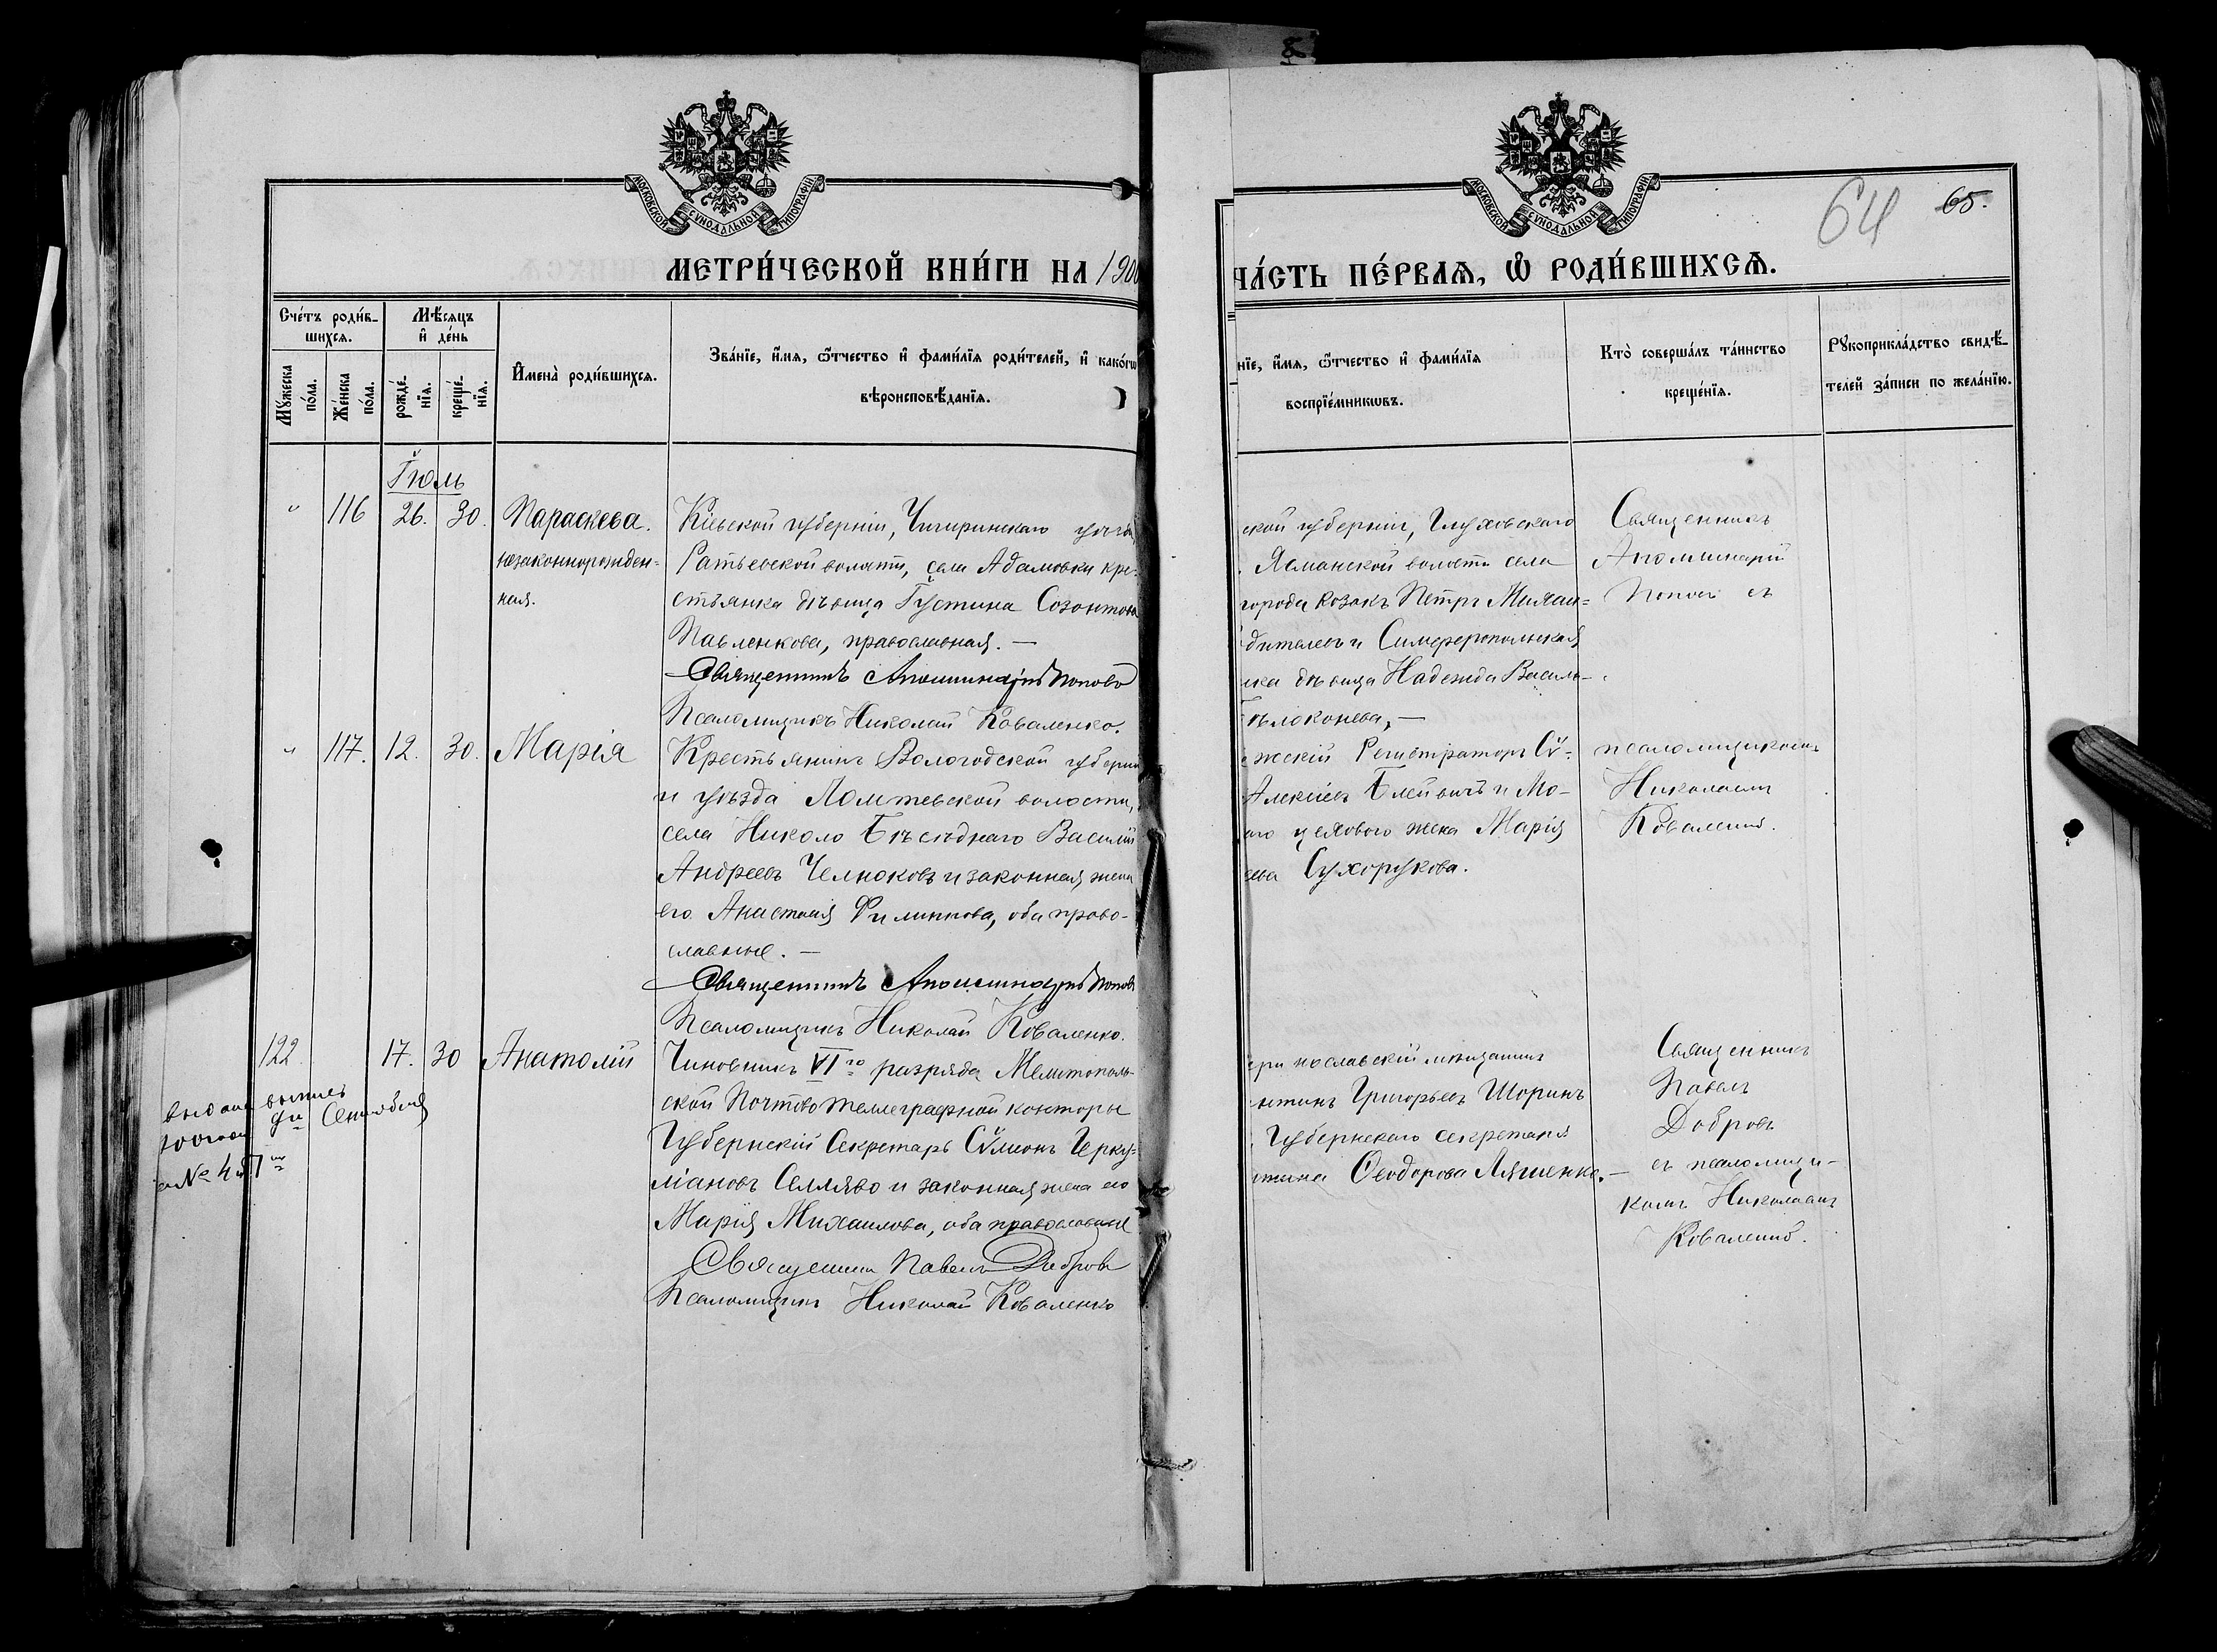 МОСКОВСКОЙ СѴНОДАЛЬНОЙ ТИПОГРАФІИ
МЕТРИ́ЧЕСКОЙ КНИ́ГИ НА 1900
Сче́тъ роди́в-
шихсѧ.
Мѣ́сѧцъ
и҆ де́нь
Мꙋ́жеска по́ла.
Же́нска по́ла.
рожде́-
нїѧ.
креще́-
нїѧ.
И҆мена̀ роди́вшихсѧ.
Зва́нїе, и҆́мѧ, ѻ҆́тчество и҆ фами́лїѧ роди́телей, и҆ како́гѡ
вѣроисповѣ́данїѧ.
Іюль
" 116 26. 30. Параскева.
незаконнорожден-
ная.
Кіевской губерніи, Чигиринскаго уѣзда
Ратьевской волости, села Адамовки кре-
стьянка дѣвица Іустина Созонтова
Павленкова, православная. —
Священникъ Аполлинарій Поповъ
Псаломщикъ Николай Коваленко.
" 117. 12. 30. Марія
Крестьянинъ Вологодской губерніи
и уѣзда волости,
села Николо Василій
Андреевъ Челноковъ и законная жена
его Анастасія Филиппова, оба право-
славные. —
Священникъ Аполлинарій Поповъ
Псаломщикъ Николай Коваленко.
122 17. 30 Анатолій
выпись
Сентября
за №
Чиновникъ VIго разряда Мелитополь-
ской Почтово Телеграфной конторы
Губернскій Секретарь Сѵмеонъ Герку-
лановъ Селляво и законная жена его
Марія Михаилова, оба православные
Священникъ Павелъ Добровъ
Псаломщикъ Николай Коваленко
64 65.
МОСКОВСКОЙ СѴНОДАЛЬНОЙ ТИПОГРАФІИ
ЧА́СТЬ ПЕ́РВАѦ, Ѡ҆ РОДИ́ВШИХСѦ.
нїе, и҆́мѧ, ѻ҆́тчество и҆ фами́лїѧ
воспрїе́мникѡвъ.
Кто̀ соверша́лъ та́инство
креще́нїѧ.
Рꙋкоприкла́дство свидѣ́-
телей за́писи по жела́нїю.
ской губерніи, Глуховскаго
Ясманской волости села
города козакъ Петръ Михаи-
и Симферопольская
дѣвица Надежда Василь-
Бѣлоконева, —
Священникъ
Аполлинарій
Поповъ съ
жскій Регистраторъ Сѵ-
Алексіевъ и Мо-
аго цехового жена Марія
ева Сухорукова.
псаломщикомъ
Николаемъ
Коваленко.
ринославскій мѣщанинъ
нтинъ Григорьевъ Шоринъ
Губернскаго секретаря
Феодорова Ляшенко. —
Священникъ
Павелъ
Добровъ
съ псаломщи-
комъ Николаемъ
Коваленко.